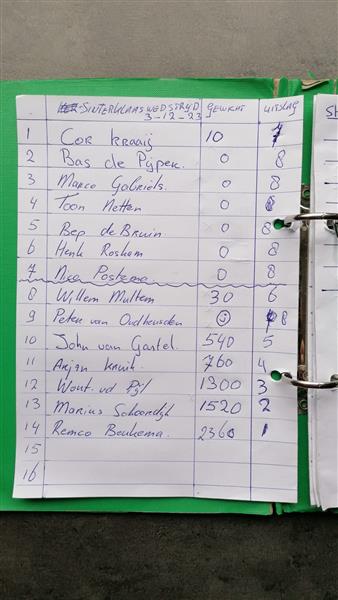 SINTERKLAAS WEDSTRYD GEWICHT UITSLAG
3-12-23
1 Cor kraaij 10 7
2 Bas de Pyper. 0 8
3 Marco Gabriels. 0 8
4 Toon Netten 0 8
5 Bep de Bruin 0 8
6 Henk 0 8
7 Postema 0 8
8 Willem Multem 30 6
9 Peter van Oudheusden 8
10 John van Gastel. 540 5
11 Arjan kruik. 760 4
12 Wout vd Pijl 1300 3
13 Marius Schoordijk 1520 2
14 Remco Beukema. 2360 1
15
16